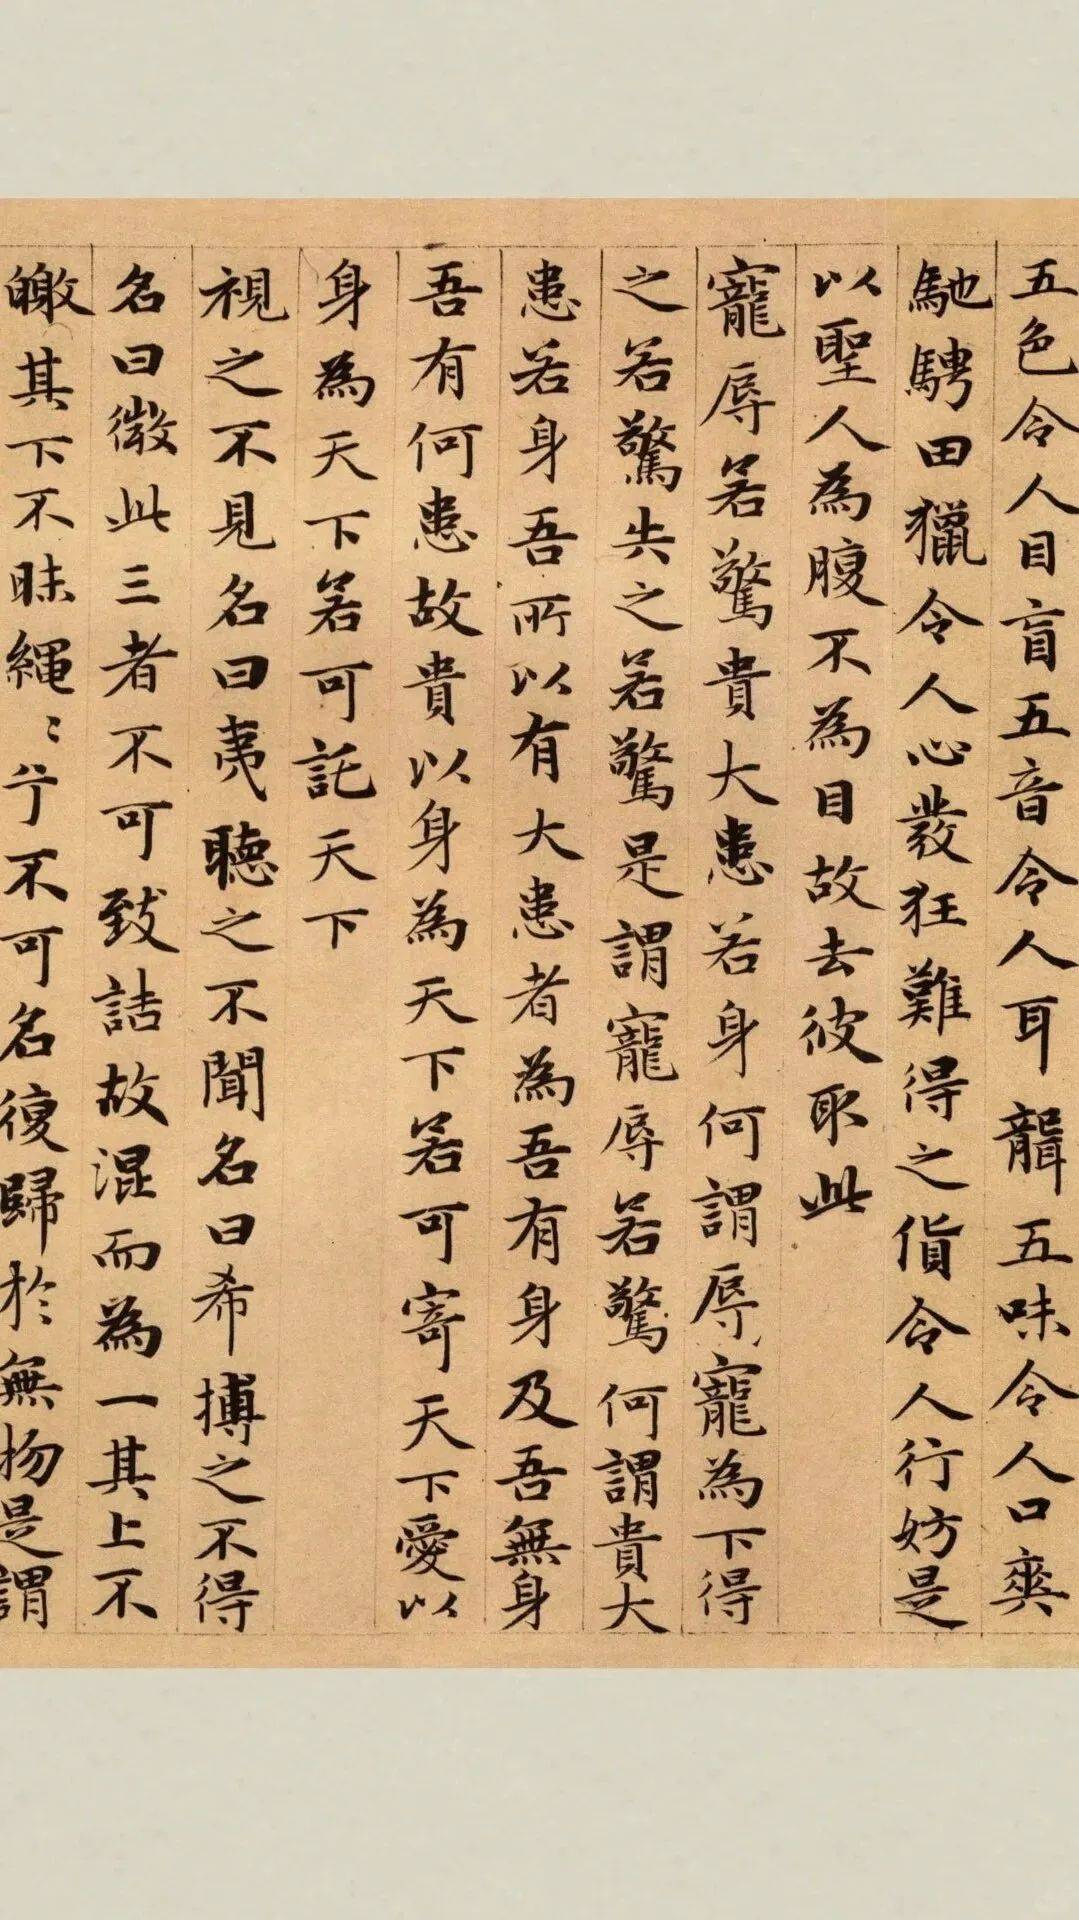 五色令人目盲五音令人耳聾五味令人口爽
馳騁田獵令人心發狂難得之貨令人行妨是
以聖人為腹不為目故去彼取此
寵辱若驚貴大患若身何謂辱寵為下得
之若驚失之若驚是謂寵辱若驚何謂貴大
患若身吾所以有大患者為吾有身及吾無身
吾有何患故貴以身為天下若可寄天下愛以
身為天下若可託天下
視之不見名曰夷聽之不聞名曰希搏之不得
名曰微此三者不可致詰故混而為一其上不
皦其下不昧繩〻兮不可名復歸於無物是謂